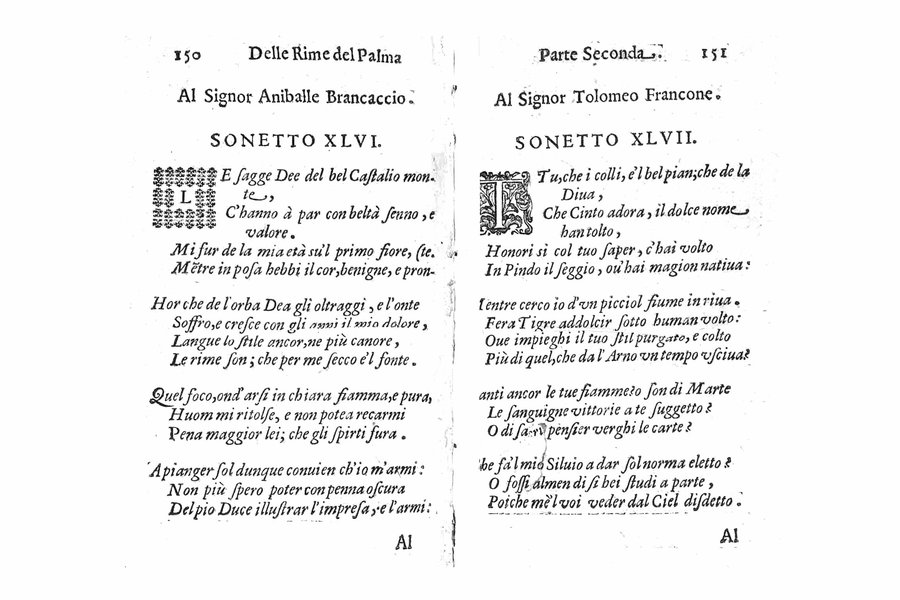 150 Delle Rime del Palma
Al Signor Aniballe Brancaccio.
SONETTO XLVI.
LE sagge Dee del bel Castalio mon-
te,
C'hanno à par con beltà senno, e
valore.
Mi fur de la mia età su'l primo fiore, (te.
Mẽtre in posa hebbi il cor, benigne, e pron-
Hor che de l'orba Dea gli oltraggi, e l'onte
Soffro, e cresce con gli anni il mio dolore,
Langue lo stile ancor, ne più canore,
Le rime son; che per me secco è'l fonte.
Quel foco, ond'arsi in chiara fiamma, e pura,
Huom mi ritolse, e non potea recarmi
Pena maggior lei; che gli spirti fura.
A pianger sol dunque conuien ch'io m'armi:
Non più spero poter con penna oscura
Del pio Duce illustrar l'impresa, e l'armi:
Al
Parte Seconda. 151
Al Signor Tolomeo Francone.
SONETTO XLVII.
TU, che i colli, e'l bel pian; che de la
Diua,
Che Cinto adora, il dolce nome
han tolto,
Honori sì col tuo saper, c'hai volto
In Pindo il seggio, ou'hai magion natiua:
entre cerco io d'vn picciol fiume in riua.
Fera Tigre addolcir sotto human volto:
Oue impieghi il tuo stil purgato, e colto
Più di quel, che da l'Arno vn tempo vsciua?
anti ancor le tue fiamme? o son di Marte
Le sanguigne vittorie a te suggetto?
O di pensier verghi le carte?
he fa'l mio Siluio a dar sol norma eletto?
O fossi almen di sì bei studi a parte,
Poiche mè'l voi veder dal Ciel disdetto.
Al